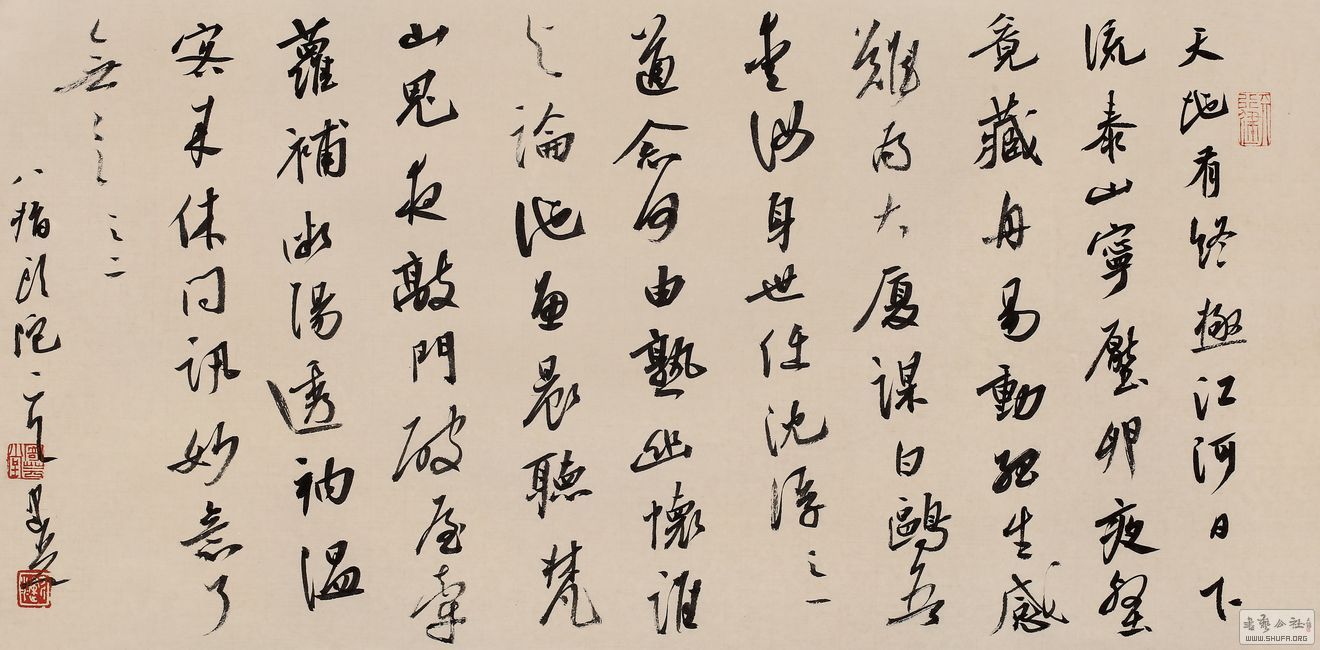 天地有終極江河日下
流泰山寧壓卵夜壑
竟藏舟易動孤生感
難為大廈謀白鷗吾
愛汝身世任沈浮 之一
道念何由熟幽懷誰
與論池魚晨聽梵
山鬼夜敲門破屋牽
蘿補微陽透衲溫
客來休問訊妙意了
無言 之二
八指頭陀二首
书艺公社
WWW.SHUFA.ORG